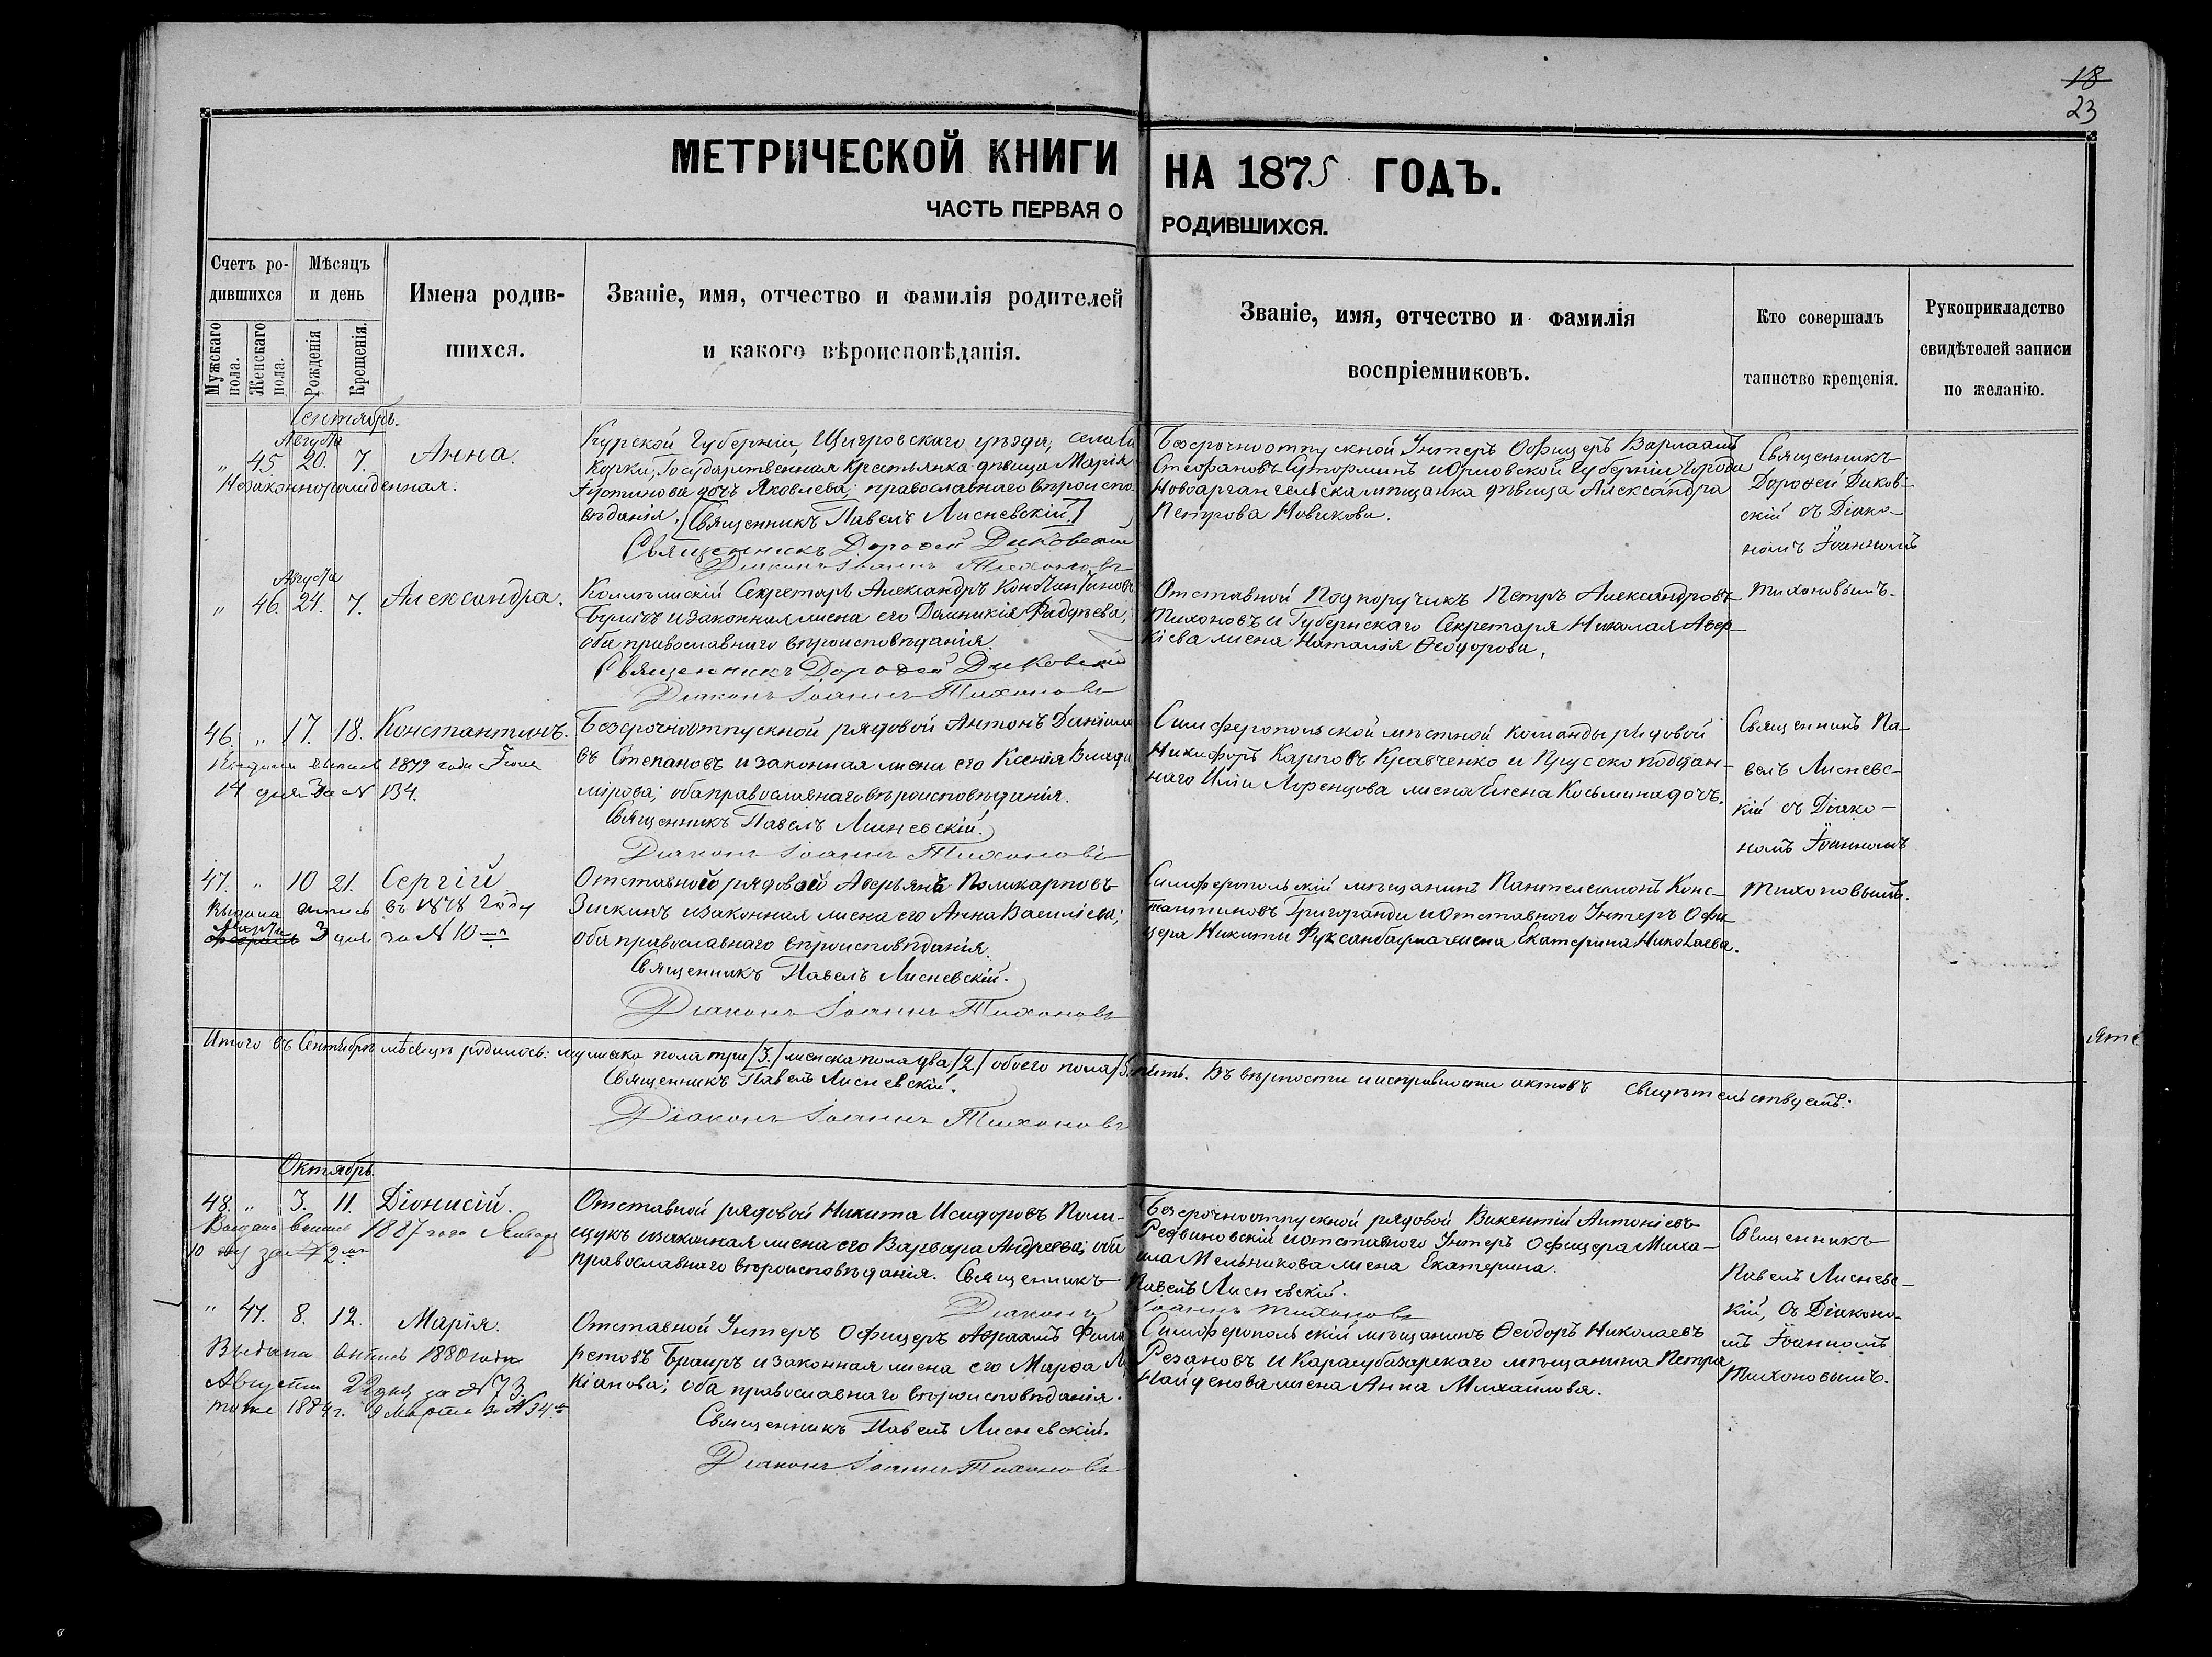 18
23
МЕТРИЧЕСКОЙ КНИГИ НА 1875 ГОДЪ.
ЧАСТЬ ПЕРВАЯ О РОДИВШИХСЯ.
Счетъ родившихся
Мужскаго пола.
Женскаго пола.
Мѣсяцъ и день
Рожденія
Крещенія.
Имена родившихся.
Званіе, имя, отчество и фамилія родителей
и какого вѣроисповѣданія.
Званіе, имя, отчество и фамилія
воспріемниковъ.
Кто совершалъ
таинство крещенія.
Рукоприкладство
свидѣтелей записи
по желанію.
Сентябрь.
Августа
" 45 20. 7. Анна.
Незаконнорожденная.
Курской Губерніи, Щигровскаго уѣзда, села
Государственная Крестьянка дѣвица Марія
Іустинова дочь Яковлева; православнаго вѣроиспо-
вѣданія. [Священникъ Павелъ Лисневскій.]
Священникъ Дороѳей Диковскій
Діаконъ Іоаннъ Тихоновъ
Безсрочноотпускной Унтеръ Офицеръ Варлаамъ
Стефановъ Суторминъ и Орловской Губерніи Города
Новоархангельска мѣщанка дѣвица Александра
Петрова Новикова.
Священникъ
Дороѳей Диков-
скій съ Діако-
номъ Іоанномъ
Августа
" 46. 24. 7. Александра.
Коллежскій Секретарь Александръ Константиновъ
и законная жена его Домникія Фадѣева;
оба православнаго вѣроисповѣданія.
Священникъ Дороѳей Диковскій
Діаконъ Іоаннъ Тихоновъ
Отставной Подпоручикъ Петръ Александровъ
Тихоновъ и Губернскаго Секретаря Николая Авер-
кіева жена Наталія Ѳеодорова.
Тихоновымъ.
46. " 17. 18. Константинъ.
Выдана выпись 1879 года Іюня
14 дня За N 134.
Безсрочноотпускной рядовой Антонъ Даніило-
въ Степановъ и законная жена его Ксенія Влади-
мірова; оба православнаго вѣроисповѣданія.
Священникъ Павелъ Лисневскій.
Діаконъ Іоаннъ Тихоновъ
Симферопольской мѣстной команды рядовой
Никифоръ Карповъ Кравченко и Прусско поддан-
наго Иліи Лоренцова жена Елена Косьмина дочь.
Священникъ Па-
велъ Лисневс-
кій съ Діако-
номъ Іоанномъ
47. " 10 21. Сергій
Выдана выпись въ 1878 году
Марта
февраль 3 дня за N 10
Отставной рядовой Аверьянъ Поликарповъ
Зискинъ и законная жена его Анна Васильева;
оба православнаго вѣроисповѣданія.
Священникъ Павелъ Лисневскій.
Діаконъ Іоаннъ Тихоновъ
Симферопольскій мѣщанинъ Пантелеимонъ Конс-
тантиновъ Григоранди и Отставного Унтеръ Офи-
цера Никиты жена Екатерина Николаева.
Тихоновымъ.
Итого въ Сентябрѣ мѣсяцѣ родилось: мужеска пола три /3./ женска пола два /2./ обоего пола /5./ пять. Въ вѣрности и исправности актовъ свидѣтельствуемъ:
Священникъ Павелъ Лисневскій.
Діаконъ Іоаннъ Тихоновъ
Октябрь.
48. " 3. 11. Діонисій.
Выдана выпись 1887 года Января
10 дня за N 2
Отставной рядовой Никита Исидоровъ Поли-
щукъ и законная жена его Варвара Андреева; оба
православнаго вѣроисповѣданія. Священникъ Павелъ Лисневскій.
Діаконъ Іоаннъ Тихоновъ
Безсрочноотпускной рядовой Викентій Антоніевъ
и отставного Унтеръ Офицера Миха-
ила Мельникова жена Екатерина.
Священникъ
Павелъ Лисневс-
кій, съ Діаконо-
мъ Іоанномъ
Тихоновымъ.
" 47. 8. 12. Марія.
Выдана выпись 1880 года
Августа 22 дня за N 73.
тоже 1884 г. 9 Марта за N 34.
Отставной Унтеръ Офицеръ Авраамъ Фила-
ретовъ Браиръ и законная жена его Марѳа Лу-
кіанова; оба православнаго вѣроисповѣданія.
Священникъ Павелъ Лисневскій.
Діаконъ Іоаннъ Тихоновъ
Симферопольскій мѣщанинъ Ѳеодоръ Николаевъ
Резановъ и Карасубазарскаго мѣщанина Петра
Найденова жена Анна Михайлова.